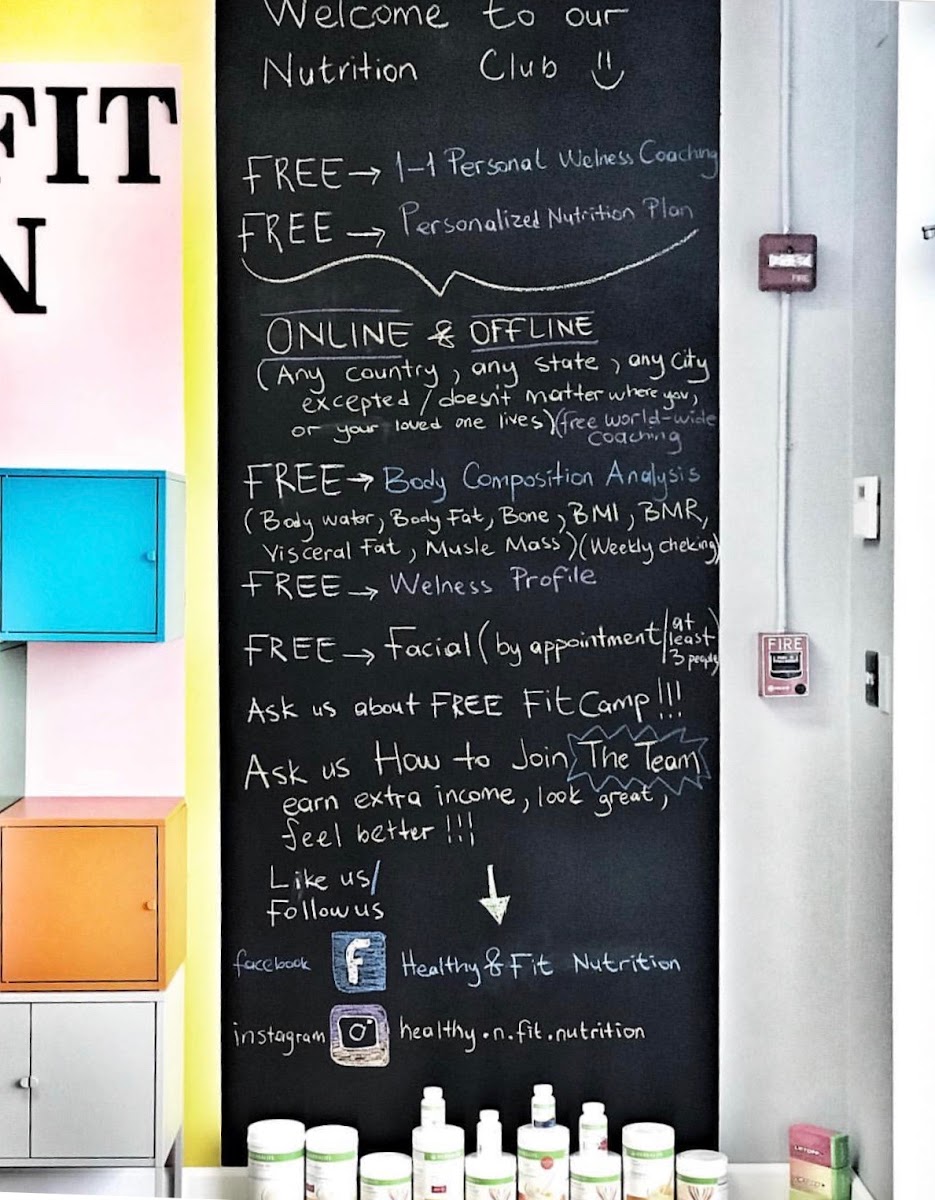 Welcome to our
Nutrition Club
FIT
N
FREE → 1-1 Personal Welness Coaching
FREE → Personalized Nutrition Plan
ONLINE & OFFLINE
(Any country, any state, any city
excepted/doesn't matter where you,
or your loved one lives)(free world-wide
coaching
FREE → Body Composition Analysis
(Body water, Body Fat, Bone, BMI, BMR,
Visceral Fat, Musle Mass)(Weekly cheking)
FREE → Welness Profile
FREE → Facial (by appointment/at
least
3 people)
Ask us about FREE Fit Camp!!!
Ask us How to Join The Team
earn extra income, look great,
feel better!!!
Like us/
Follow us
facebook f Healthy & Fit Nutrition
instagram healthy.n.fit.nutrition
FIRE
FIRE
HERBALIFE